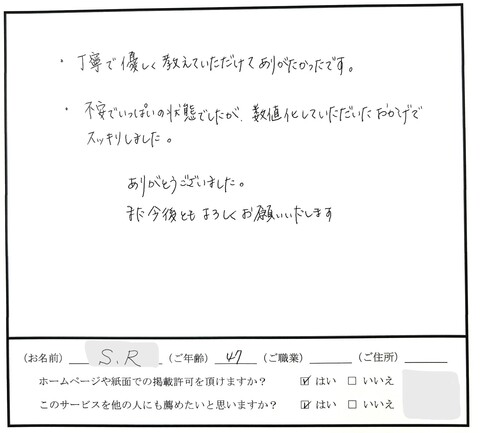 ・丁寧で優しく教えていただけてありがたかったです。
・不安でいっぱいの状態でしたが、数値化していただいたおかげで
スッキリしました。
ありがとうございました。
また今後ともよろしくお願いいたします
(お名前) S.R (ご年齢) 47 (ご職業) (ご住所)
ホームページや紙面での掲載許可を頂けますか? ☑ はい □ いいえ
このサービスを他の人にも薦めたいと思いますか? ☑ はい □ いいえ